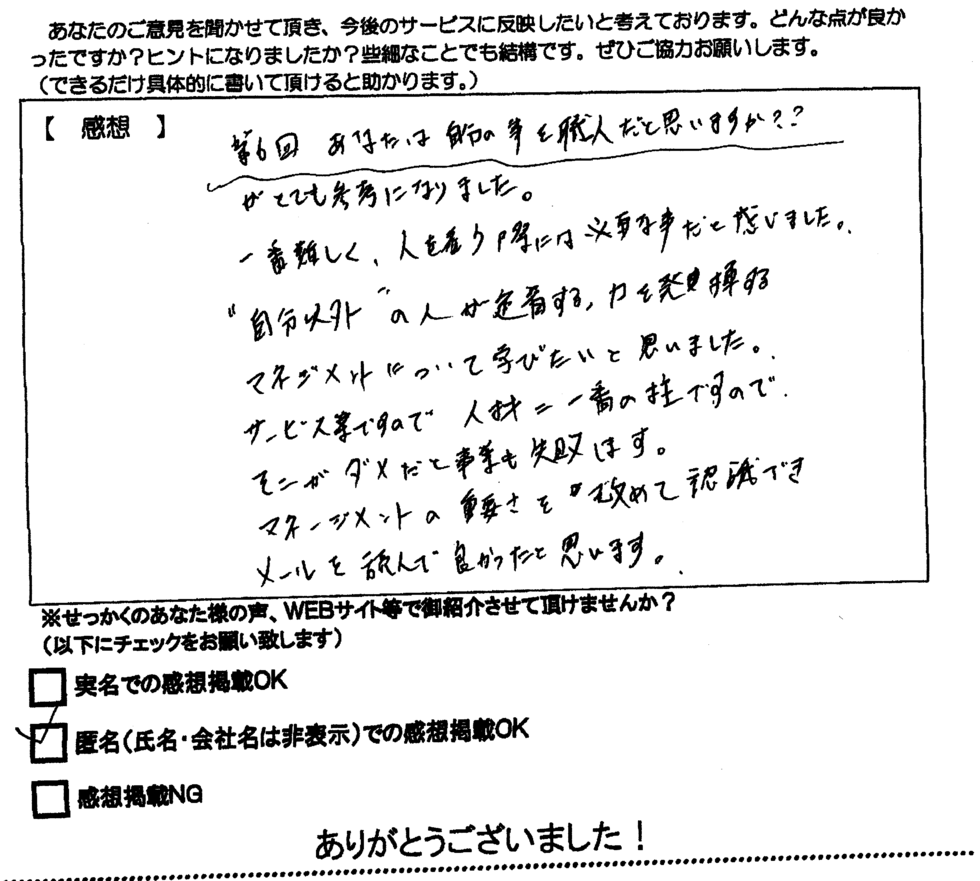 あなたのご意見を聞かせて頂き、今後のサービスに反映したいと考えております。どんな点が良か
ったですか？ヒントになりましたか？些細なことでも結構です。ぜひご協力お願いします。
（できるだけ具体的に書いて頂けると助かります。）
【 感想 】
第6回 あなたは 自分の事を職人だと思いますか？？
がとても参考になりました。
一番難しく、人を雇う際には必要な事だと感じました。
“自分以外”の人が定着する，力を発揮する
マネジメントについて学びたいと思いました。
サービス業ですので 人材＝一番の柱ですので
そこがダメだと事業も失敗します。
マネージメントの重要さを改めて認識でき
メールを読んで良かったと思います。
※せっかくのあなた様の声、WEBサイト等で御紹介させて頂けませんか？
（以下にチェックをお願い致します）
実名での感想掲載OK
匿名（氏名・会社名は非表示）での感想掲載OK
感想掲載NG
ありがとうございました！